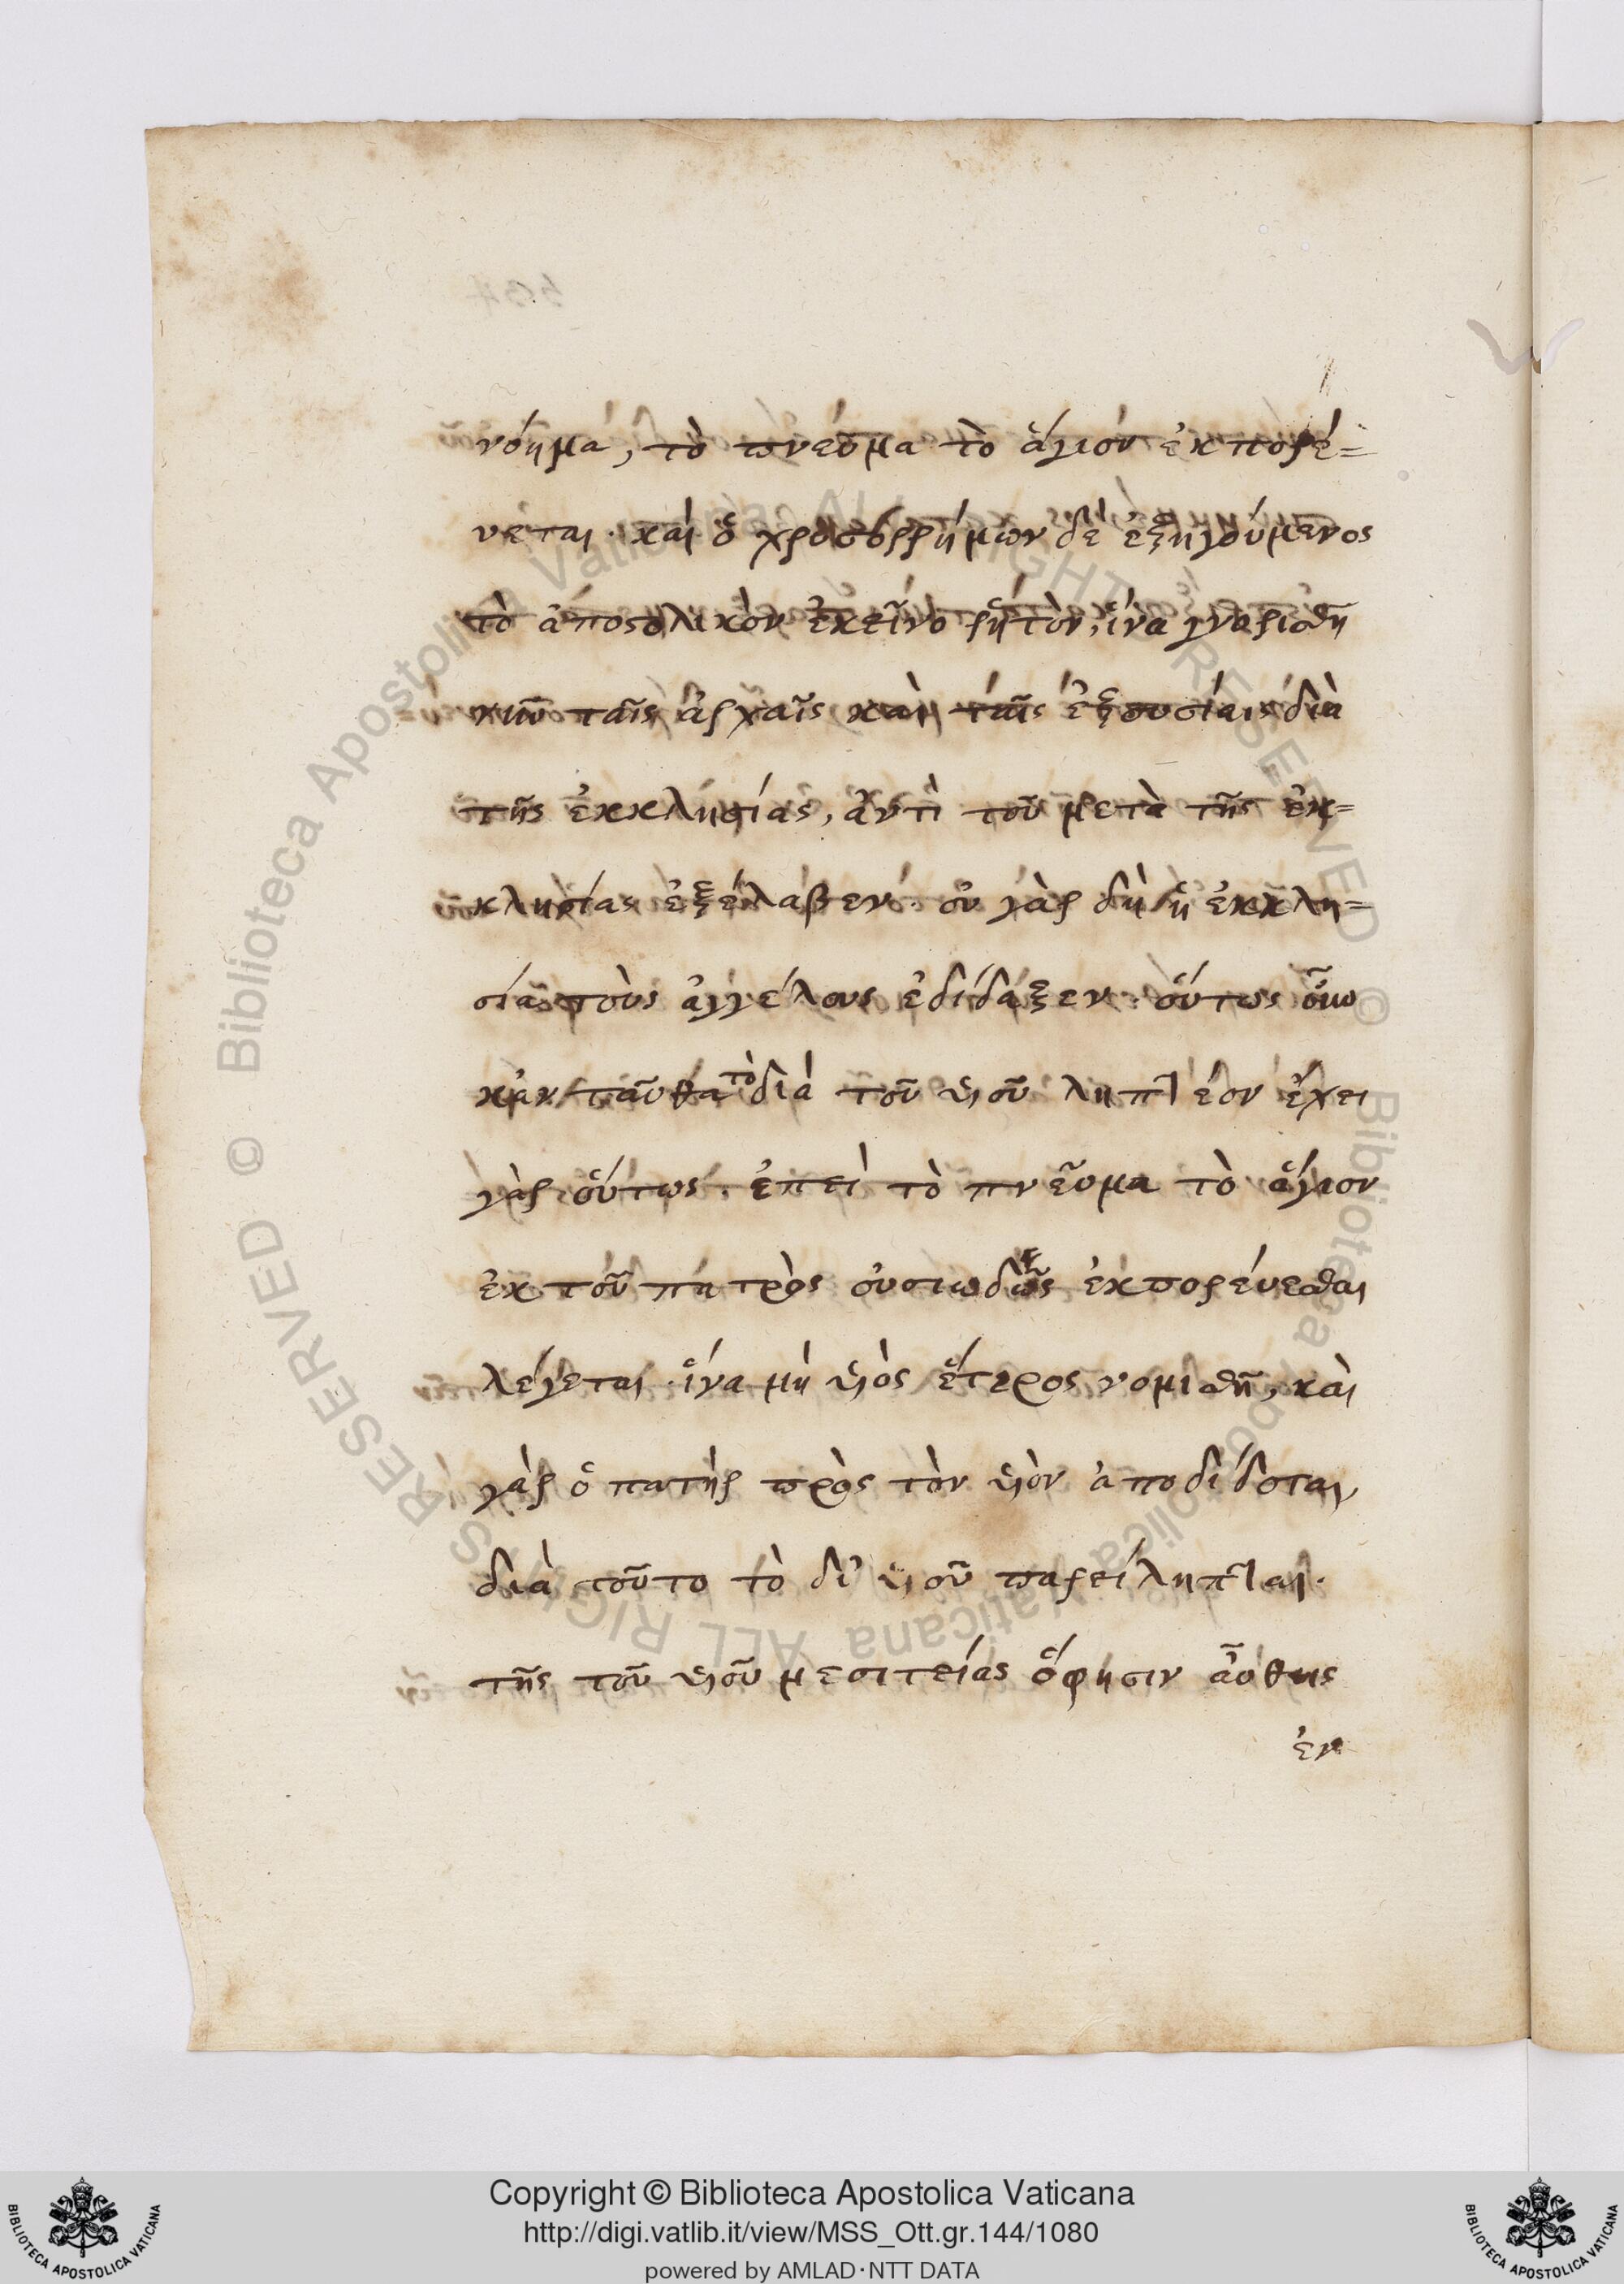 νόημα, τὸ πνεῦμα τὸ ἅγιον ἐκπορέ=
υεται. καὶ ὁ χρυσορρήμων δὲ ἐξηγούμενος
τὸ ἀποστολικὸν ἐκεῖνο ῥητὸν, ἵνα γνωρισθῆ
νῦν ταῖς ἀρχαῖς καὶ ταῖς ἐξουσίαις διὰ
τῆς ἐκκλησίας, ἀντὶ τοῦ μετὰ τῆς ἐκ=
κλησίας ἐξέλαβεν. οὐ γὰρ δὴ ἡ ἐκκλη=
σία τοὺς ἀγγέλους ἐδίδαξεν. οὕτως οὖν
κἀνταῦθα τὸ διὰ τοῦ υἱοῦ ληπτέον ἔχει
γὰρ οὕτως. ἐπεὶ τὸ πνεῦμα τὸ ἅγιον
ἐκ τοῦ πατρὸς οὐσιωδῶς ἐκπορεύεσθαι
λέγεται. ἵνα μὴ υἱὸς ἕτερος νομισθῆ, καὶ
γὰρ ὁ πατὴρ πρὸς τὸν υἱὸν ἀποδίδοται,
διὰ τοῦτο τὸ δι' υἱοῦ παρείληπται.
τῆς τοῦ υἱοῦ μεσιτείας ὅ φησιν αὖθις
ἐν
Biblioteca Apostolica Vaticana ALL RIGHTS RESERVED ©
Biblioteca Apostolica Vaticana ALL RIGHTS RESERVED ©
Copyright © Biblioteca Apostolica Vaticana
http://digi.vatlib.it/view/MSS_Ott.gr.144/1080
powered by AMLAD·NTT DATA
BIBLIOTECA APOSTOLICA VATICANA
BIBLIOTECA APOSTOLICA VATICANA